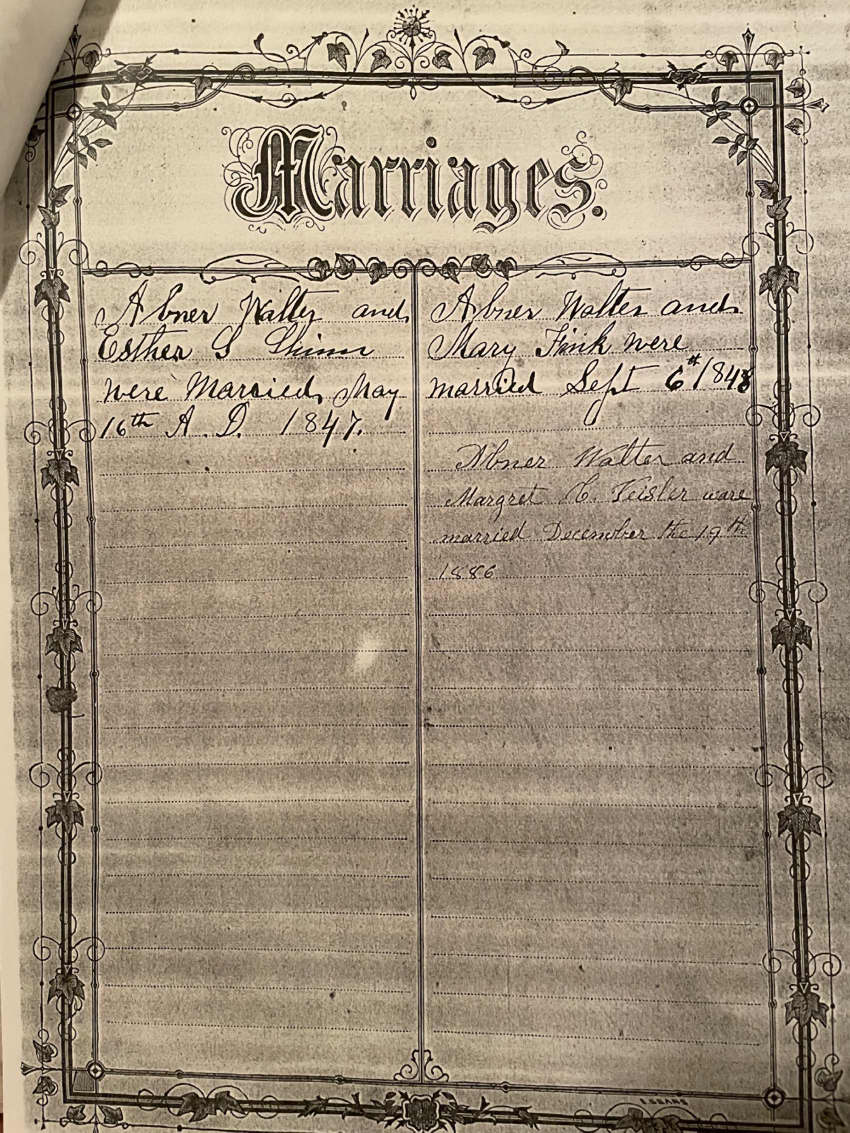 Marriages.
Abner Walter and
Esther S Shinn
were Married, May
16th A. D. 1847.
Abner Walter and
Mary Fink were
married Sept 6th 1848
Abner Walter and
Margret C. Teisler ware
married December the 19th
1886